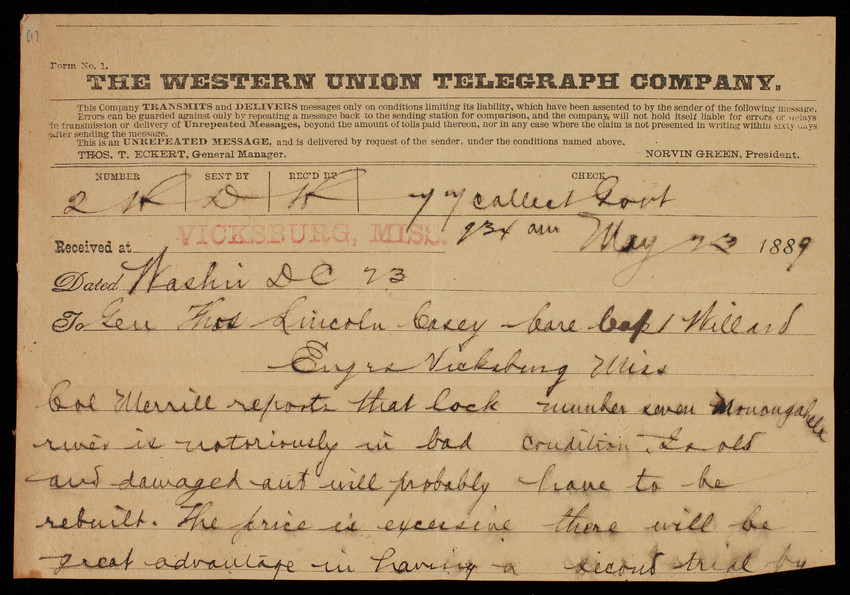 [1]
Form No. 1.
THE WESTERN UNION TELEGRAPH COMPANY.
This Company TRANSMITS and DELIVERS messages only on conditions limiting its liability, which have been assented to by the sender of the following message.
Errors can be guarded against only by repeating a message back to the sending station for comparison, and the company will not hold itself liable for errors or delays
in transmission or delivery of Unrepeated Messages, beyond the amount of tolls paid thereon, nor in any case where the claim is not presented in writing within sixty days
after sending the message.
This is an UNREPEATED MESSAGE, and is delivered by request of the sender, under the conditions named above.
THOS. T. ECKERT, General Manager. NORVIN GREEN, President.
NUMBER SENT BY REC'D BY CHECK
2 D collect Govt
Received at VICKSBURG, MISS. 934 am May 23 1889
Dated Washn DC 23
To Gen Thos Lincoln Casey Care Capt Willard
Engrs Vicksburg Miss
Col Merrill reports that lock number seven Monongahela
river is notoriously in bad condition. Is old
and damaged and will probably have to be
rebuilt. The price is excessive there will be
great advantage in having a second trial by